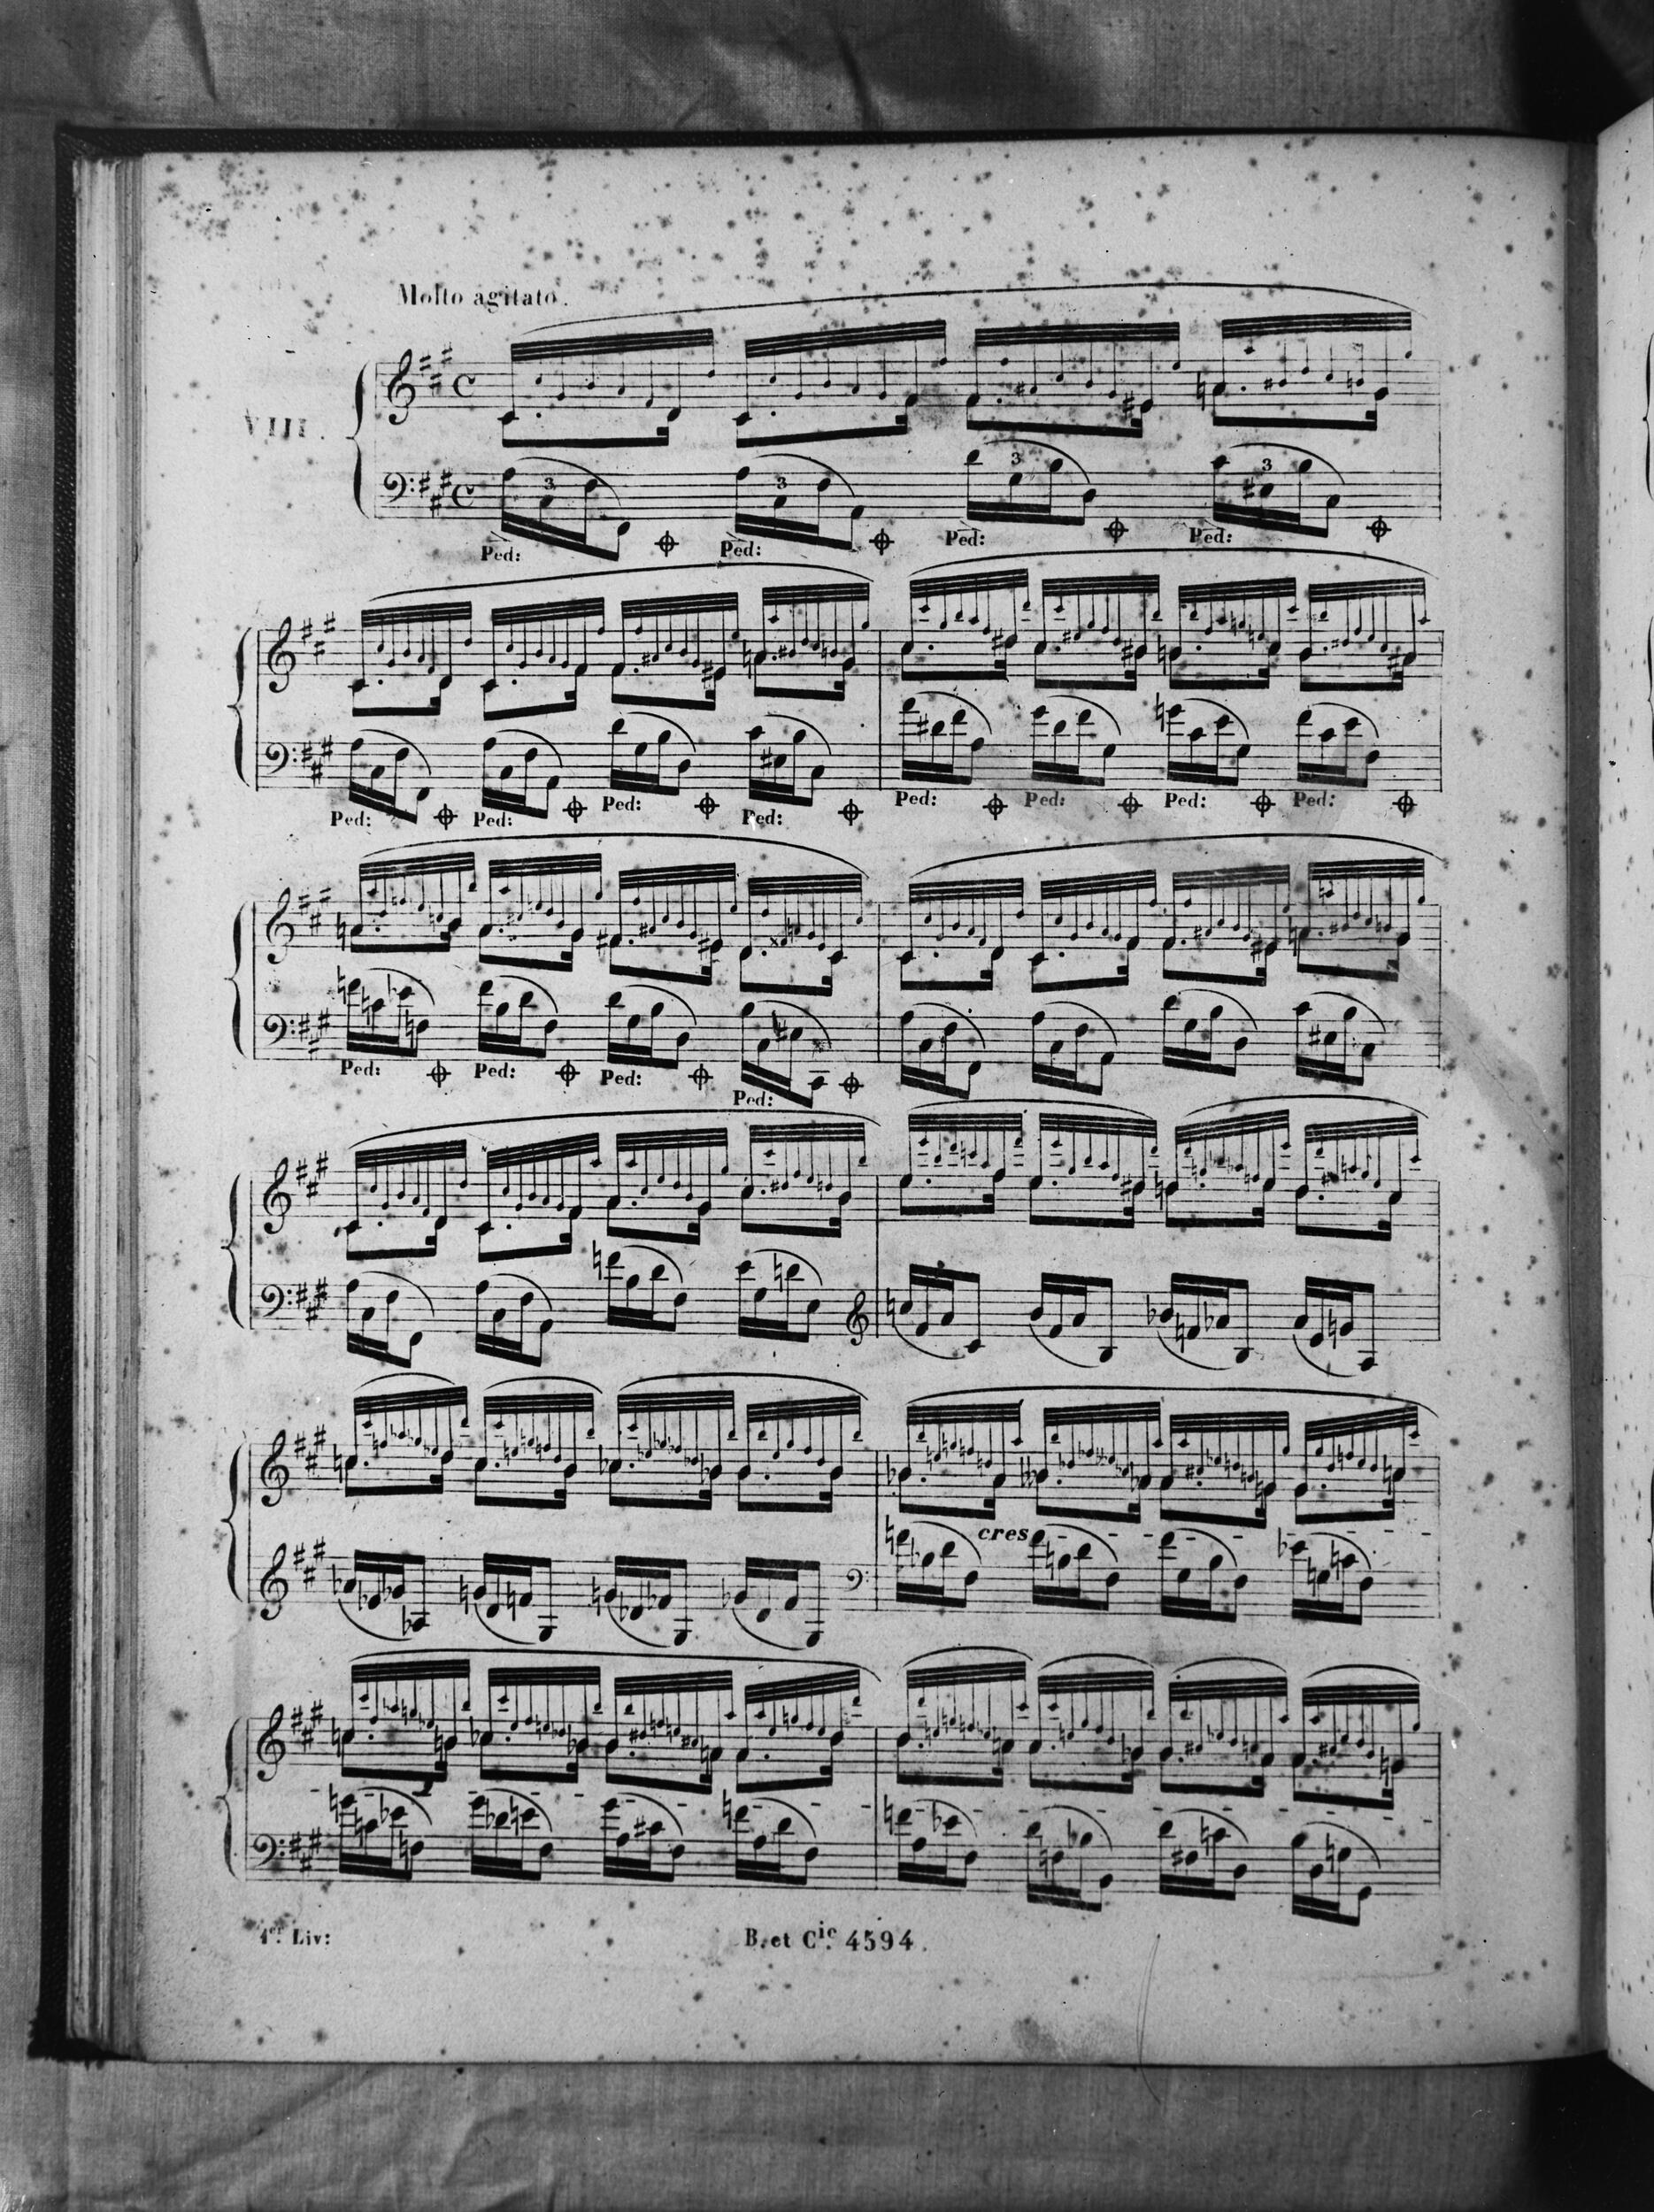 Molto agitato.
VIII.
3 3 3 3
Ped: Ped: Ped: Ped:
Ped: Ped: Ped: Ped: Ped: Ped: Ped: Ped:
Ped: Ped: Ped: Ped:
cres
1er. Liv: B. et Cie. 4594.